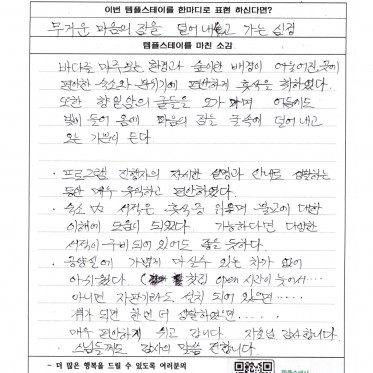 이번 템플스테이를 한마디로 표현 하신다면?
무거운 마음의 짐을 덜어 내려놓고 가는 심경
템플스테이를 마친 소감
바다를 마주보는 환경과 숲이란 배경이 어울어진 곳에
편안한 숙소와 분위기에 편안하게 휴식을 취하였다.
또한 향일암의 굴들을 오가며 어둠에도
빛이 들어 옴에 마음의 짐을 굴 속에 덜어 내고
오는 기분이 든다.
· 프로그램 진행자의 자세한 설명과 안내로 생활하는
동안 매우 유익하고 편안하였다.
· 숙소 內 서적은 휴식 중 읽으며 불교에 대한
이해에 도움이 되었다. 가능하다면, 다양한
서적이 구비 되어 있어도 좋을 듯하다.
· 공양실에 가볍게 마실수 있는 차가 없어
아쉬웠다. ( 찻집 이용 시간이 늦어서...
아니면 자판기라도 설치 되어 있으면.....
계가 되면 한번 더 생활하였으면.....
매우 편안하게 쉬고 갑니다. 자호님 감사합니다.
스님들께도 감사의 말씀 전합니다.
- 더 많은 행복을 드릴 수 있도록 여러분의
템플스테이